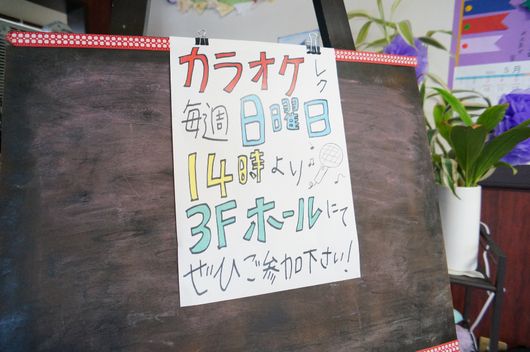 カラオケレク
毎週日曜日
14時より
3Fホールにて
ぜひご参加下さい!
5月